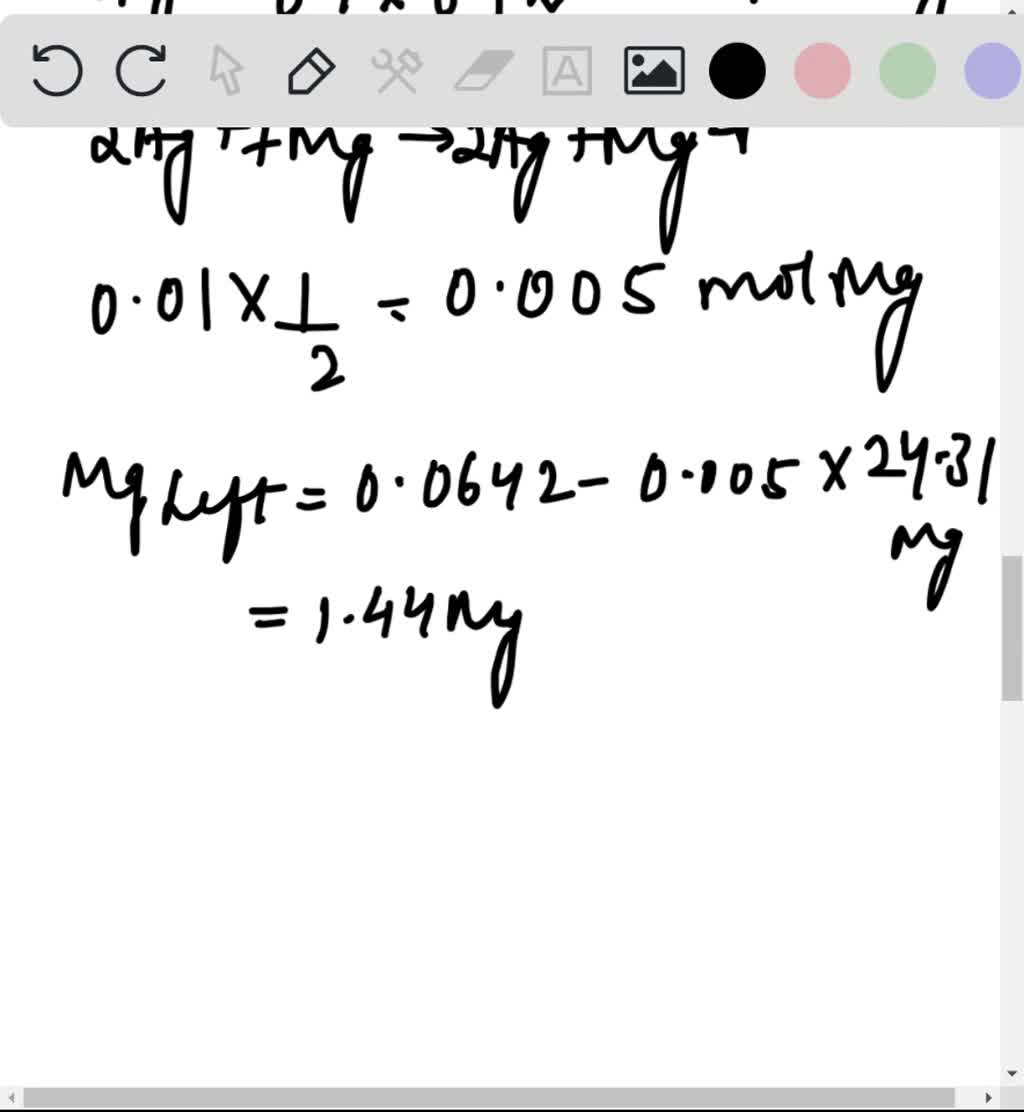 2Ag + + Mg → 2Ag + Mg +
0.01 X 1/2 = 0.005 mol Mg
Mg Left = 0.0642 - 0.005 X 24.31 Mg
= 1.44 Mg